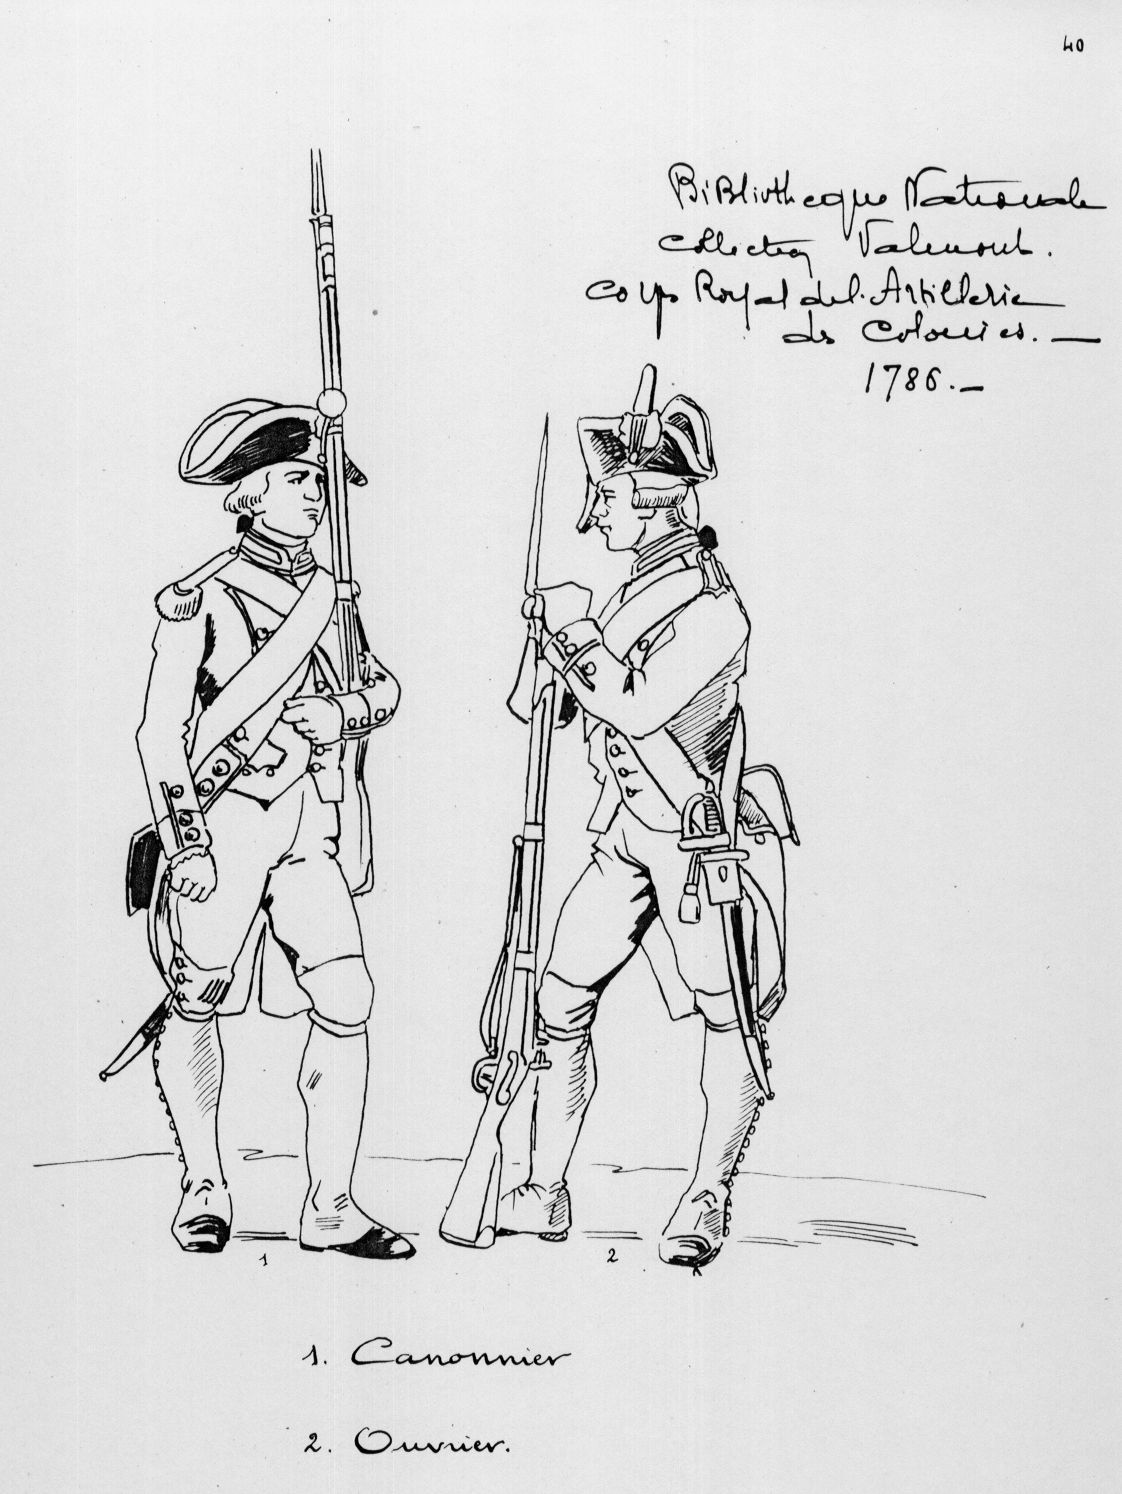 40
Bibliotheque Nationale
Collection Valmont.
Corps Royal de l'Artillerie
des Colonies. —
1786. —
1
2
1. Canonnier
2. Ouvrier.